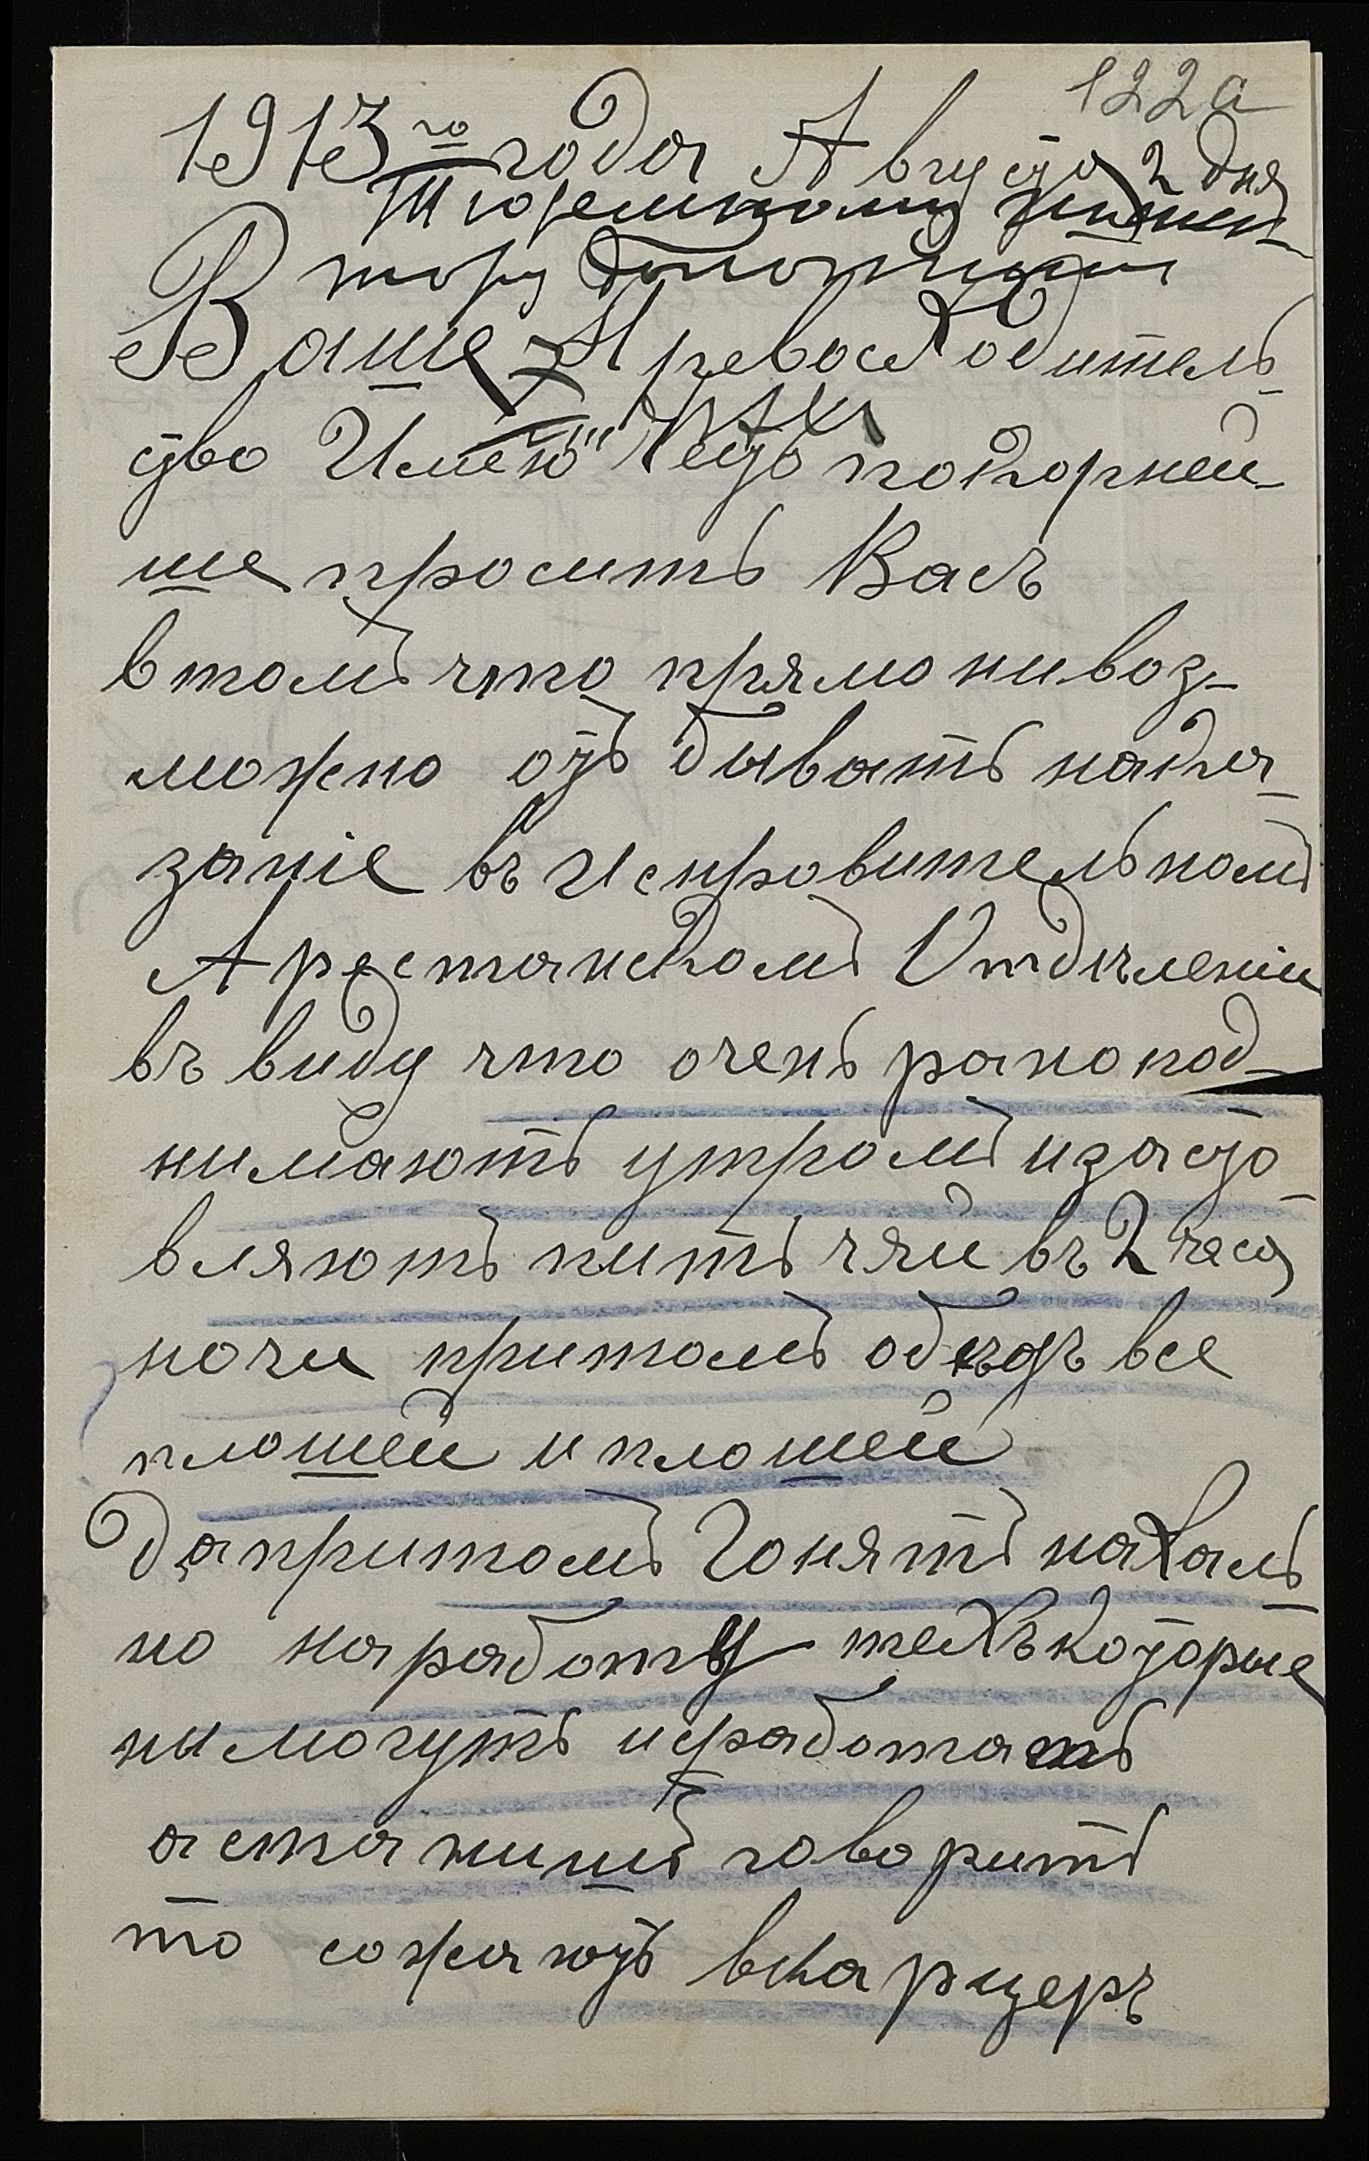 122а
1913го года Августа 2 дня
Тюремному инспек-
тору
Ваше Превосходитель-
ство Имею Честь покорней-
ше просить Васъ
втомъ что прямо нивоз-
можно отъ бывать нака-
заніе въ Исправительномъ
Арестанскомъ Отделеніи
въ виду что очень рано под-
нимають утромъ изасто-
вляють пить чяй въ 2 часа
ночи притомъ обедъ все
плошей иплошей
Дапритомъ Гонять нахаль-
но наработу техъкоторые
нимогуть иработать
астаршій говорить
то сожають вкарцеръ